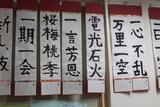 一心不乱
万里一空
電光石火
一言芳恩
桜梅桃李
一期一会